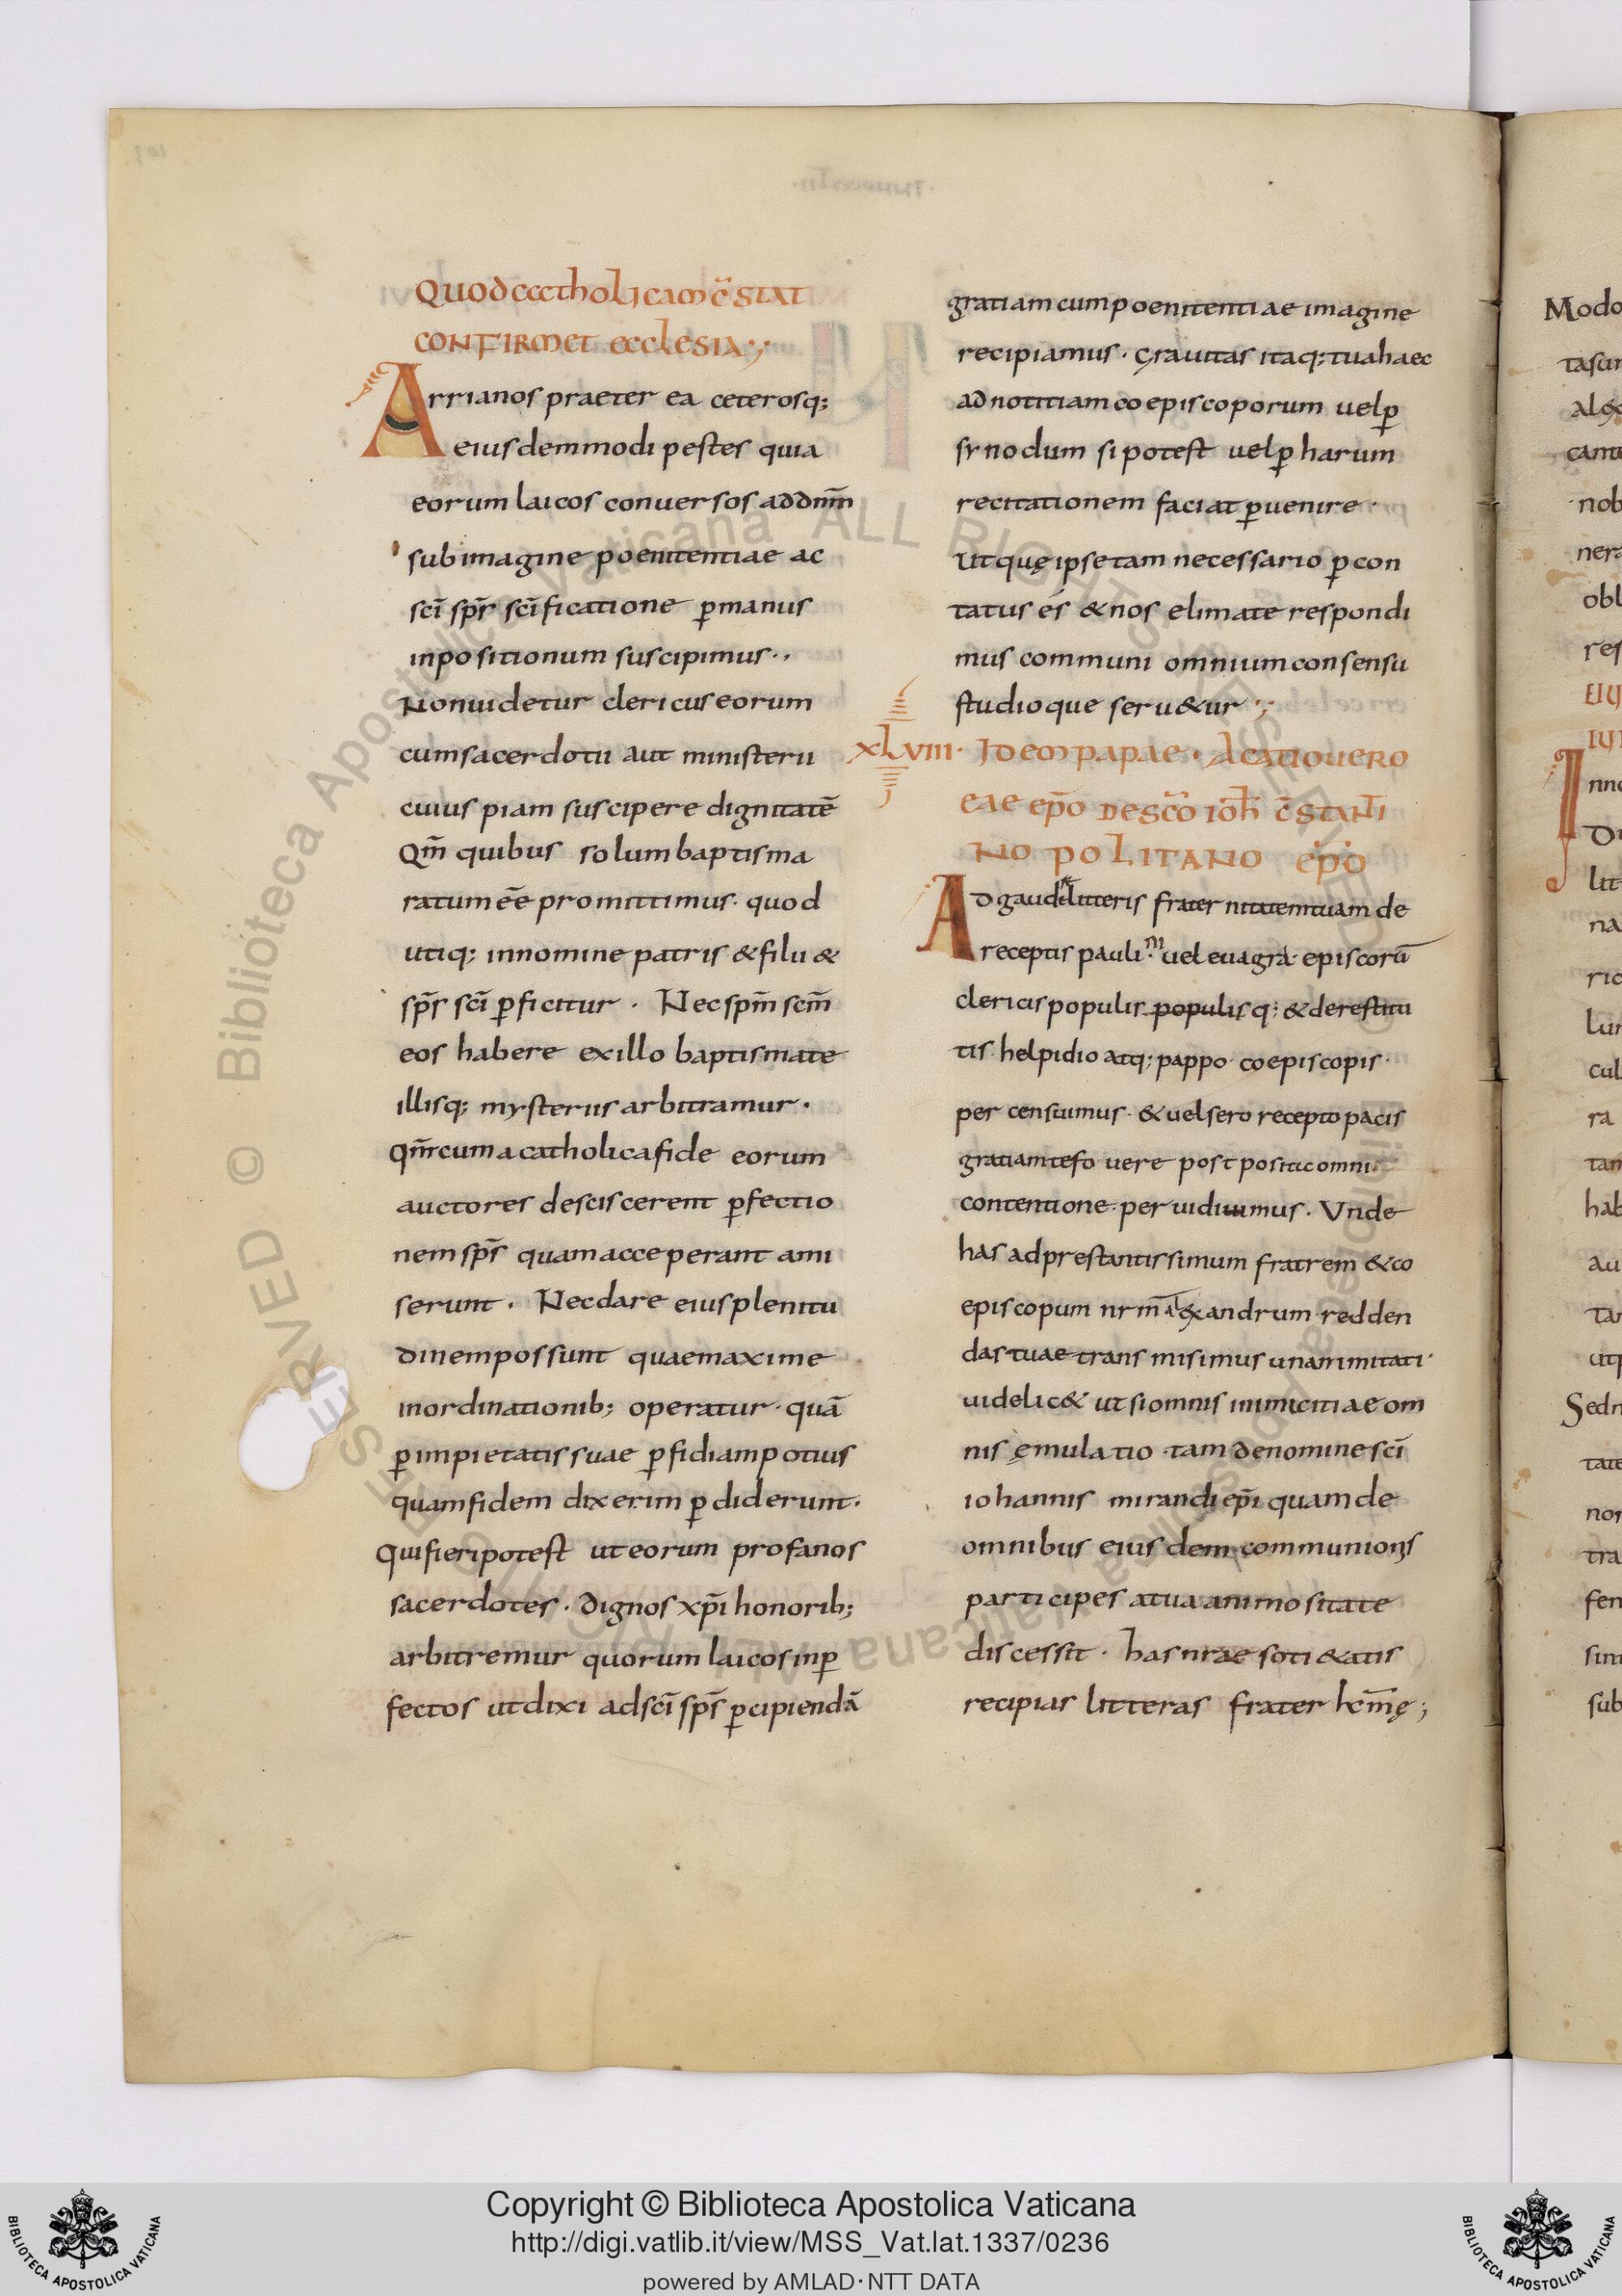 quod catholicam c̄stat
confirmet ecclesia·,·
Arrianos praeter ea ceterosq;
eiusdemmodi pestes quia
eorum laicos conuersos addnm̄
subimagine poenitentiae ac
sc̄i sp̄s sc̄ificatione ꝑmanus
inpositionum suscipimus··,
Nonuidetur clericus eorum
cumsacerdotii aut ministerii
cuius piam suscipere dignitatē
Qm̄ quibus solum baptisma
ratum eē promittimus· quod
utiq; innomine patris &filii &
sp̄s sc̄i ꝑficitur · Nec spm̄ scm̄
eos habere exillo baptismate
illisq; mysteriis arbitramur ·
qm̄cum a catholicafide eorum
auctores desciscerent ꝑfectio
nem sp̄s quam acceperant ami
serunt · Necdare eius plenitu
dinem possunt quaemaxime
inordinationib; operatur· quā
ꝑimpietatis suae ꝑfidiam potius
quamfidem dixerim ꝑdiderunt·
Quifieripotest ut eorum profanos
sacerdotes · dignos xp̄i honorib;
arbitremur quorum laicos inꝑ
fectos ut dixi adsc̄i sp̄s ꝑcipiendā
gratiam cum poenitentiae imagine
recipiamus · grauitas itaq; tuahaec
adnotitiam coepiscoporum uelꝑ
synodum sipotest uelꝑ harum
recitationem faciat ꝑuenire ·
Utquę ipse tam necessario ꝑcon
tatus és &nos elimate respondi
mus communi omnium consensu
studioque seru&ur ·,·
xlviii· Idem papae · Acatiouero
eae ep̄o desc̄o ioh̄ c̄stanti
nopolitano ep̄o
Adgaude litteris frater nitatemtuam de
receptis pauli·m uel euagrá· episcorū
clericis populis populisq; &derestitu
tis· helpidio atq; pappo· coepiscopis·
per censuimus· &uelsero recepto pacis
gratiamtefo uere post positic omni
contentione· per uidiuimus · Unde
has adprestantissimum fratrem &co
episcopum nr̄m al&xandrum redden
das tuae trans misimus unanimitati·
uidelic& ut siomnis inimicitiae om
nis ęmulatio tam denomine sc̄i
iohannis mirandi ep̄i quam de
omnibus eius dem communionis
participes atua animositate
discessit · has nr̄ae soti &atis
recipias litteras frater kc̄mę;
Copyright © Biblioteca Apostolica Vaticana
http://digi.vatlib.it/view/MSS_Vat.lat.1337/0236
powered by AMLAD·NTT DATA